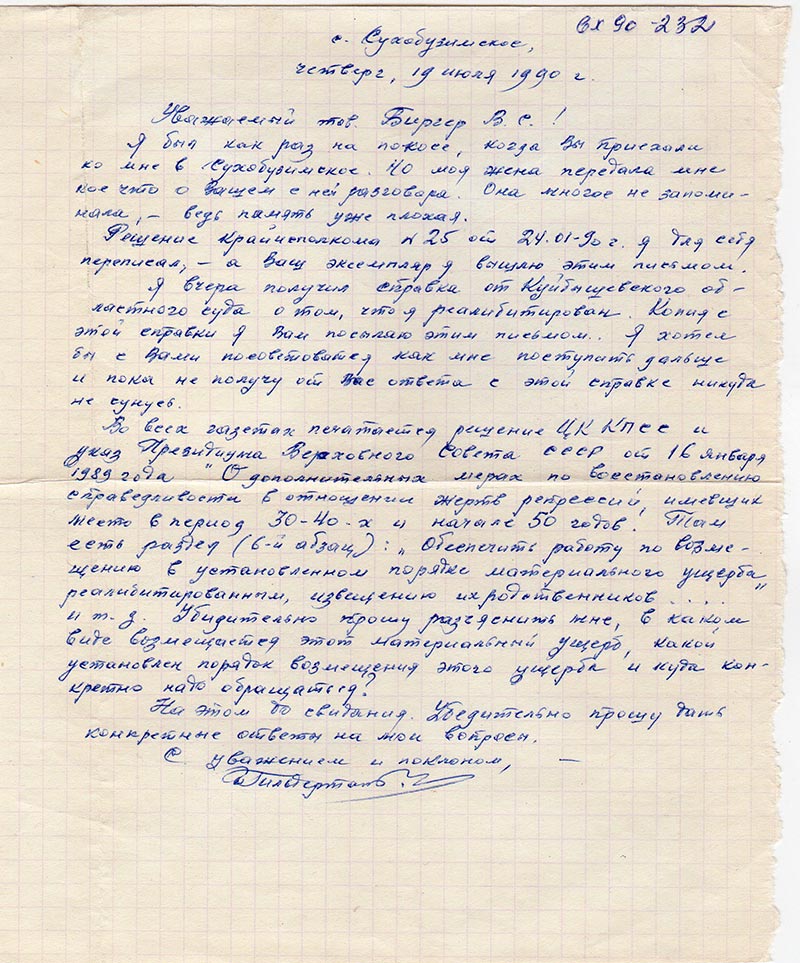 вх 90-232
с. Сухобузимское,
четверг, 19 июля 1990 г.
Уважаемый тов. Биргер В. С.!
Я был как раз на покосе, когда Вы приехали
ко мне в Сухобузимское. Но моя жена передала мне
кое что о Вашем с ней разговора. Она многое не запоми-
нала, – ведь память уже плохая.
Решение крайисполкома № 25 от 24.01-90 г. я для себя
переписал, – а Ваш экземпляр я вышлю этим письмом.
Я вчера получил справка от Куйбышевского об-
ластного суда о том, что я реалибитирован. Копия с
этой справки я Вам посылаю этим письмом.. Я хотел
бы с Вами посоветоватся как мне поступать дальше
и пока не получу от Вас ответа с этой справке никуда
не сунусь.
Во всех газетах печатается решение ЦК КПСС и
указ Президиума Верховного Совета СССР от 16 января
1989 года "О дополнительных мерах по восстановлению
справедливости в отношении жертв репрессий, имевщих
место в период 30-40-х и начале 50 годов". Там
есть раздел (6-й абзац): „Обеспечить работу по возме-
щению в установленном порядке материального ущерба
реалибитированным, извещению их родственников....."
и т. д. Убидительно прошу разъяснить мне, в каком
виде возмещается этот материальный ущерб, какой
установлен порядок возмещения этого ущерба и куда кон-
кретно надо обращаться?
На этом до свидания. Убедительно прошу дать
конкретные ответы на мои вопросы.
С уважением и поклоном, –